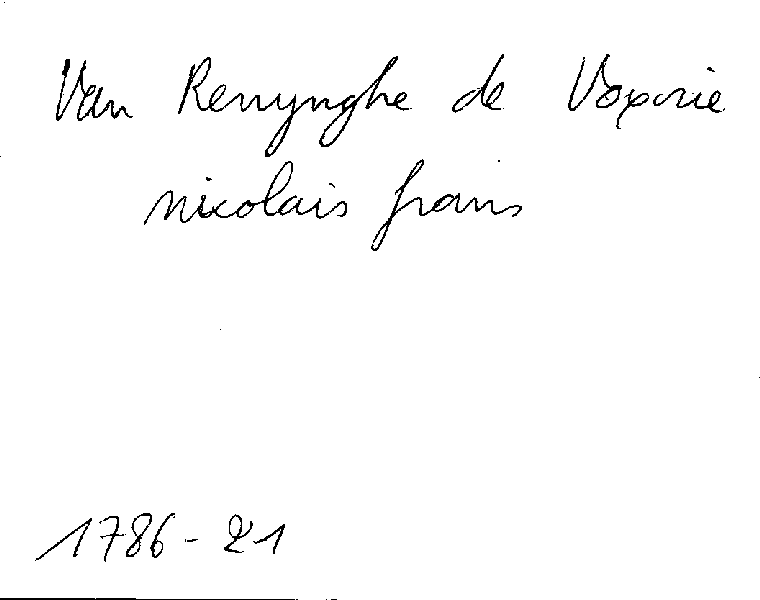 Van Renynghe de Voxvrie
nicolais frans
1786-21